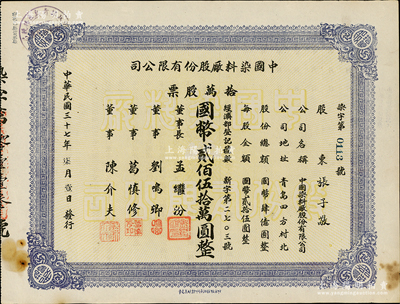 中國染料廠股份有限公司
拾萬股票
染字第0113號
股東 張子敬
公司名稱 中國染料廠股份有限公司
公司地址 青島四方村北
股份總額 國幣肆億圓整
每股金額 國幣貳拾伍圓整
經濟部登記執照 新字第二七〇三號
國幣貳佰伍拾萬圓整
董事長 孟耀汾
董事 劉鳴卿
董事 葛慎修
董事 陳介夫
中華民國三十七年柒月壹日發行